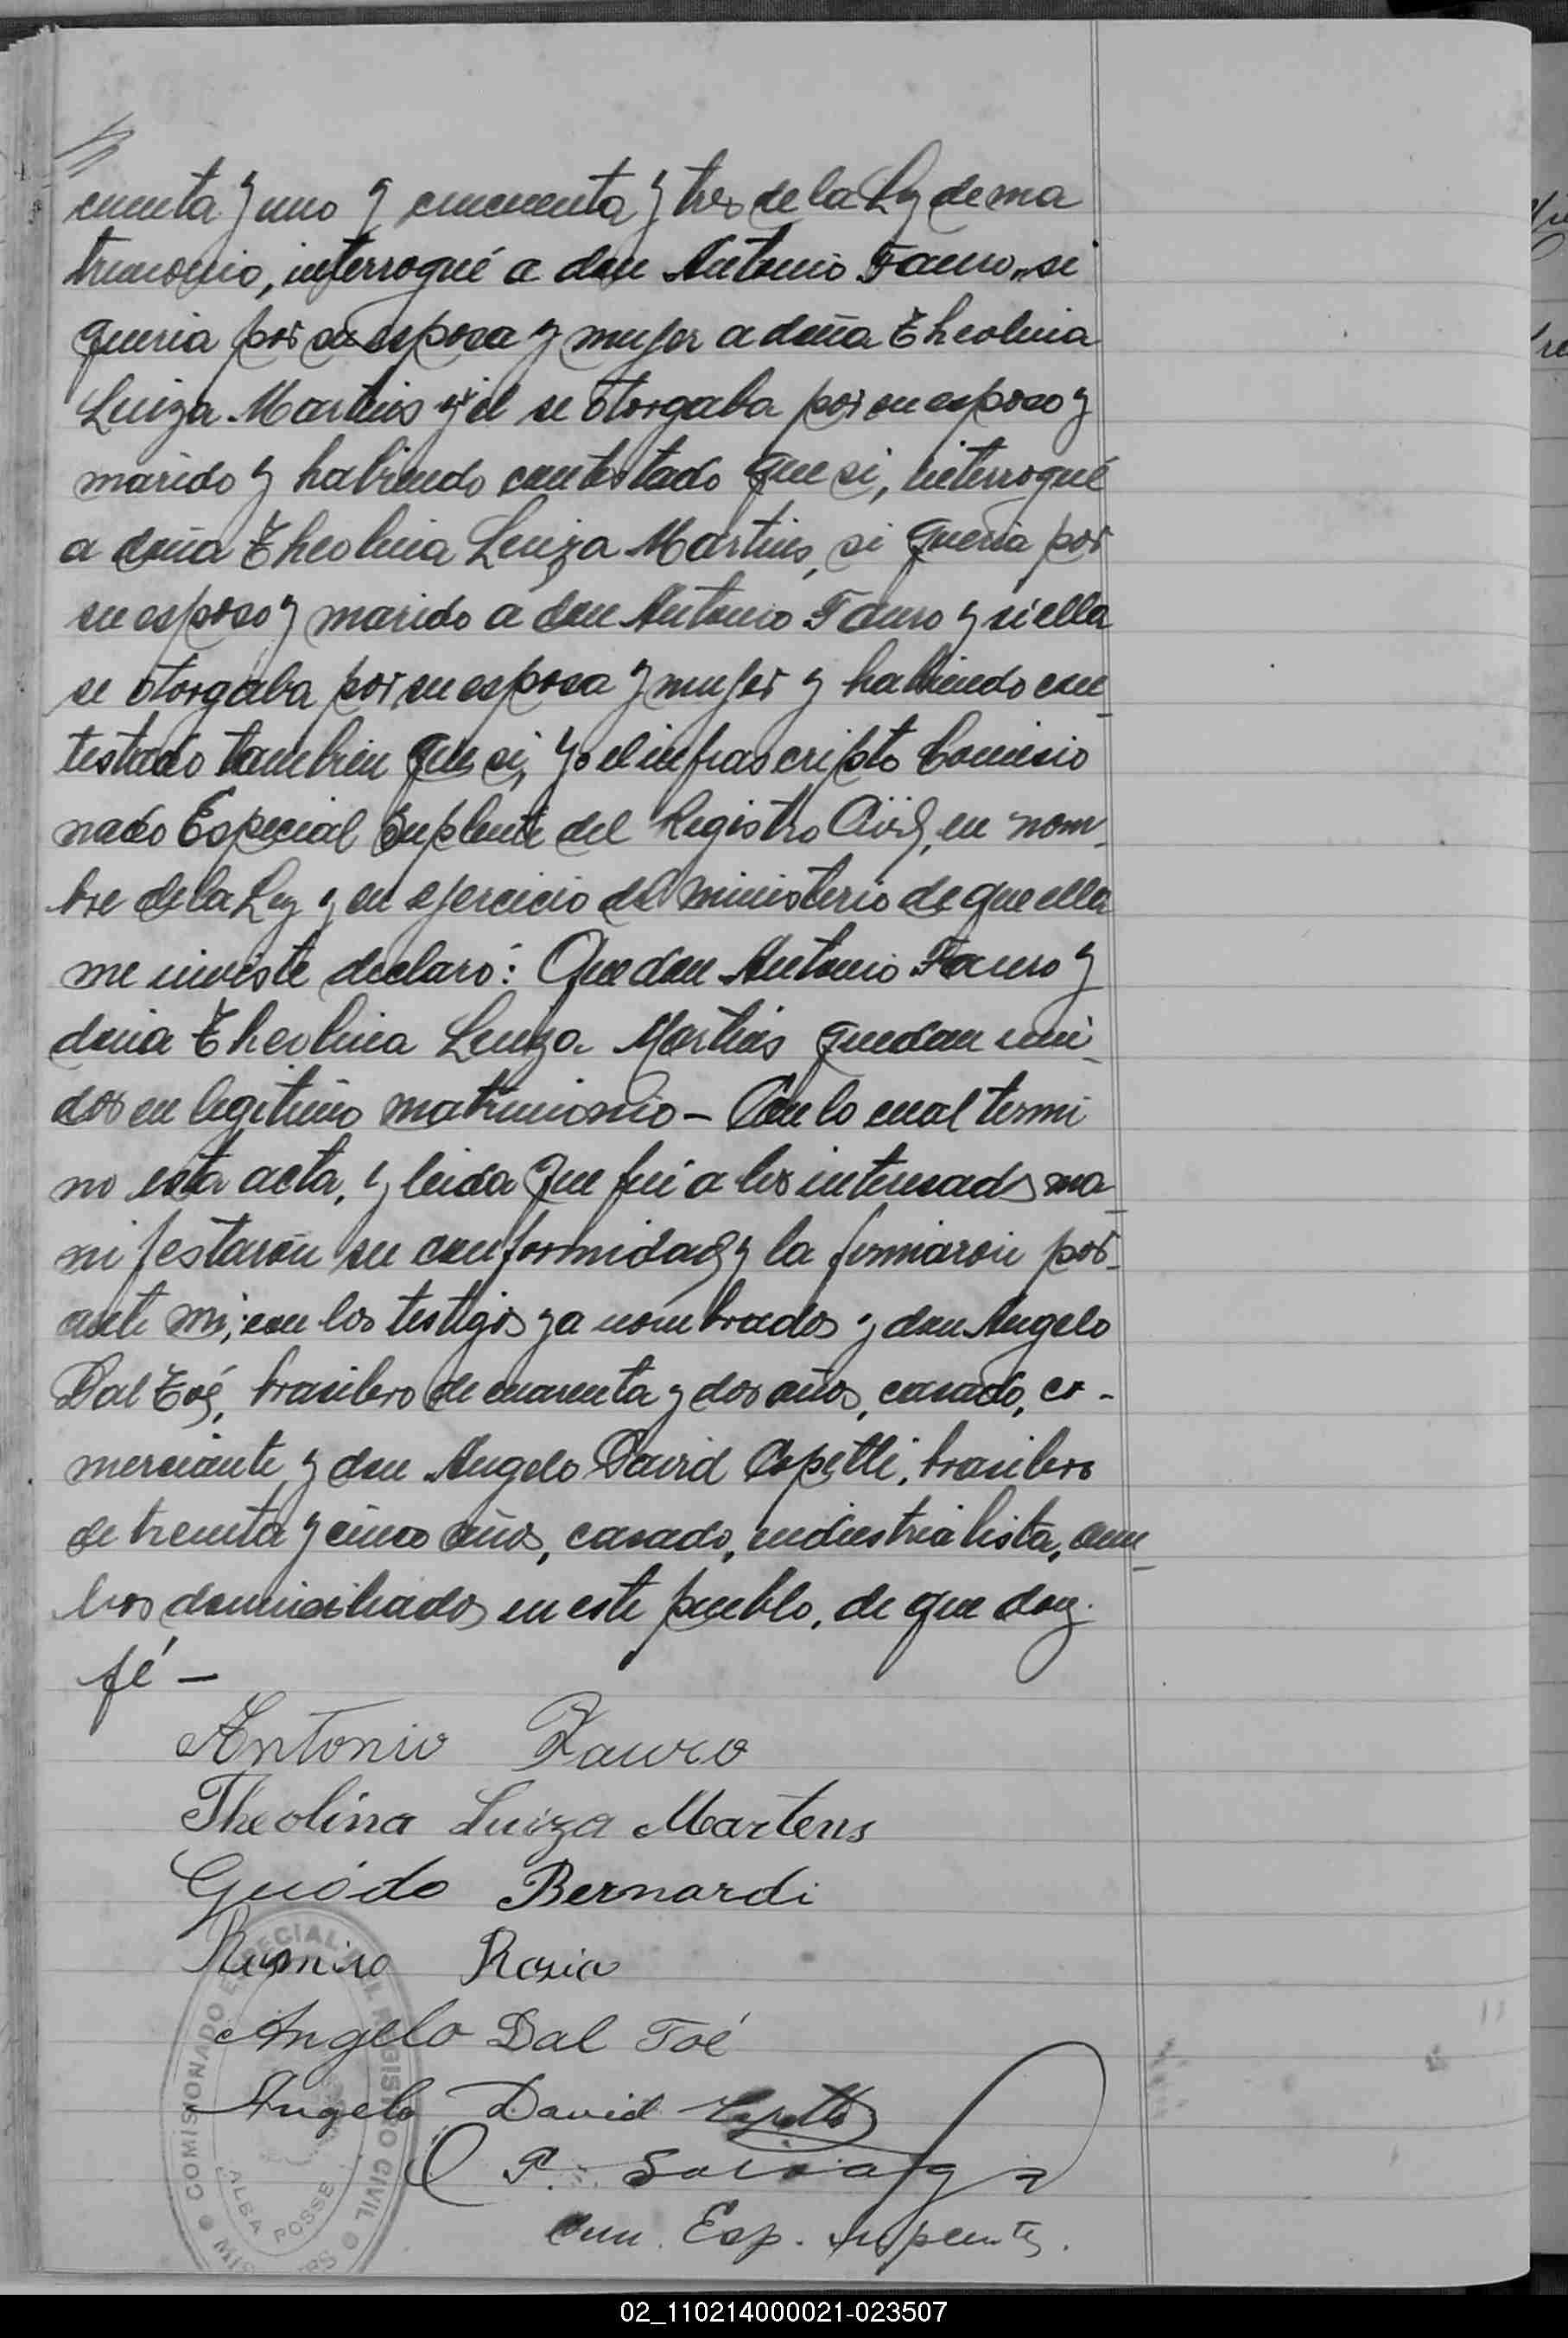 cuenta y uno y cincuenta y tres de la Ley de ma
trimonio, interrogué a don Antonio Fauro, si
queria por su esposa y mujer a doña Theolina
Luiza Martins y él se otorgaba por su esposo y
marido y habiendo contestado que si, interrogué
a doña Theolina Luiza Martins, si queria por
su esposo y marido a don Antonio Fauro y si ella
se otorgaba por su esposa y mujer y habiendo con_
testado tambien que si, Yo el infrascripto Comisio
nado Especial Suplente del Registro Civil, en nom_
bre de la Ley y en ejercicio del ministerio de que ella
me inviste declaró: Que don Antonio Fauro y
doña Theolina Luiza Martins quedan uni_
dos en legitimo matrimonio – Con lo cual termi
no esta acta, y leida que fué a los interesados ma_
nifestaron su conformidad y la firmaron por_
ante mi, con los testigos ya nombrados y don Angelo
Dal Toé, brasilero de cuarenta y dos años, casado, co-
merciante y don Angelo David Copetti, brasilero
de treinta y cinco años, casado, industrialista, am_
bos domiciliados en este pueblo, de que doy
fé –
Antonio Fauro
Theolina Luiza Martens
Guido Bernardi
Ramiro
Angelo Dal Toé
Angelo David Copetti
P.
Com. Esp. suplente.
COMISIONADO ESPECIAL DEL REGISTRO CIVIL
ALBA POSSE
02_110214000021-023507